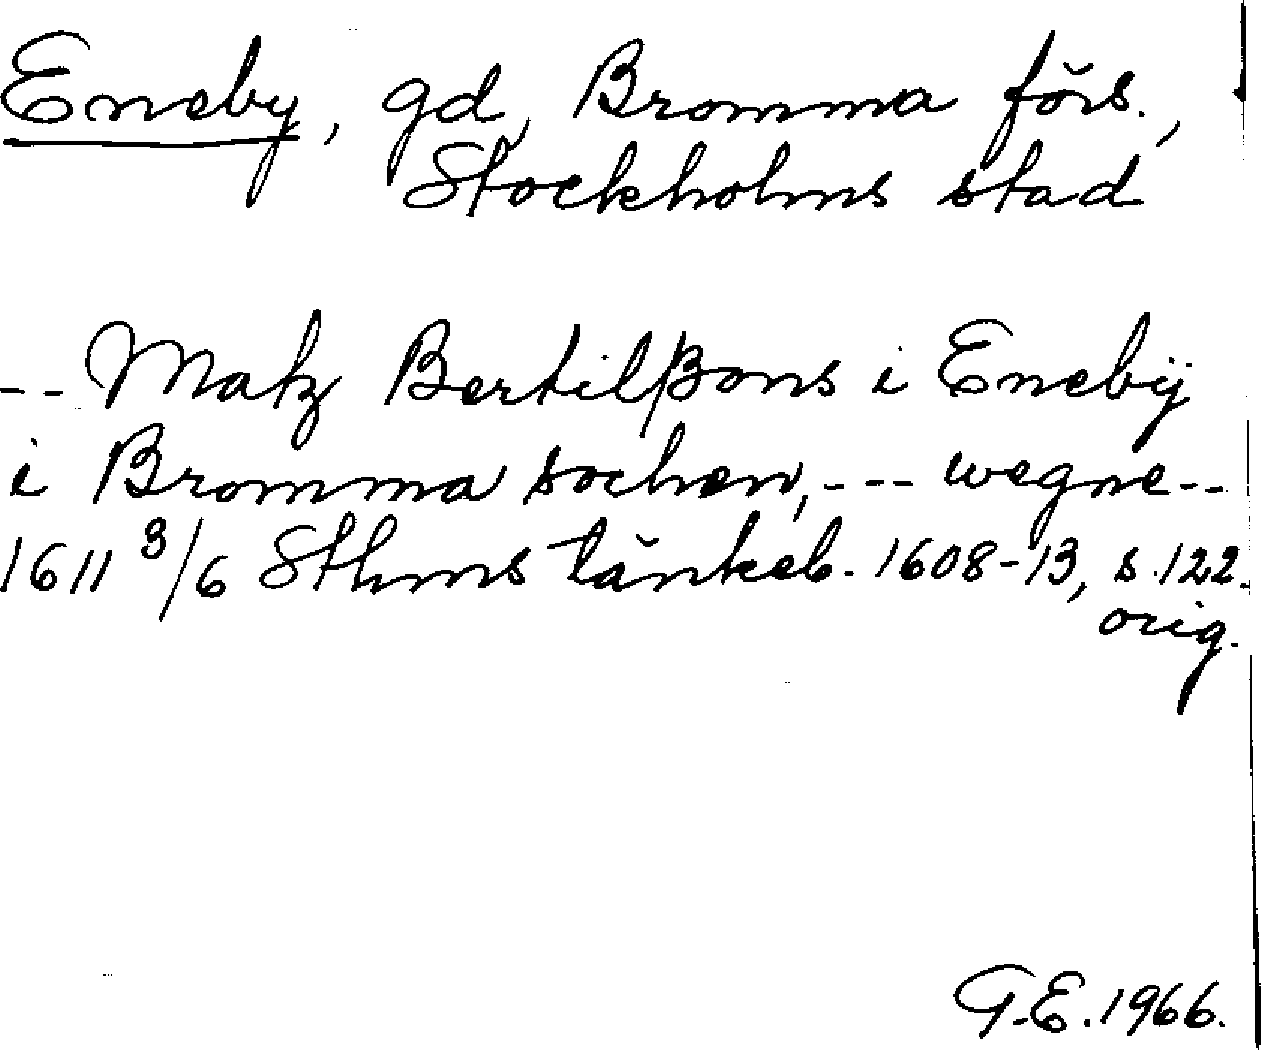 Eneby, gd, Bromma förs.,
Stockholms stad
-- Matz Bertilßons i Enebÿ
i Bromma sochen, --- wegne --
1611 3/6 Sthms tänkeb. 1608-13, s. 122.
orig.
G.E. 1966.